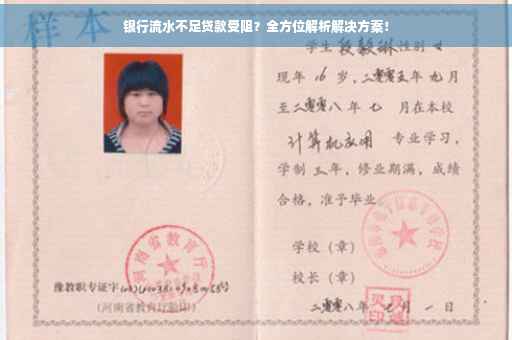 银行流水不足贷款受阻？全方位解析解决方案！
样本
学生段毅琳性别女
现年16岁，二零零五年九月
至二零零八年七 月在本校
计算机应用 专业学习，
学制三年，修业期满，成绩
合格，准予毕业
学校（章）
校长（章）
二零零八年七月一日
河南省教育厅
豫教职专证字
（河南省教育厅验印）